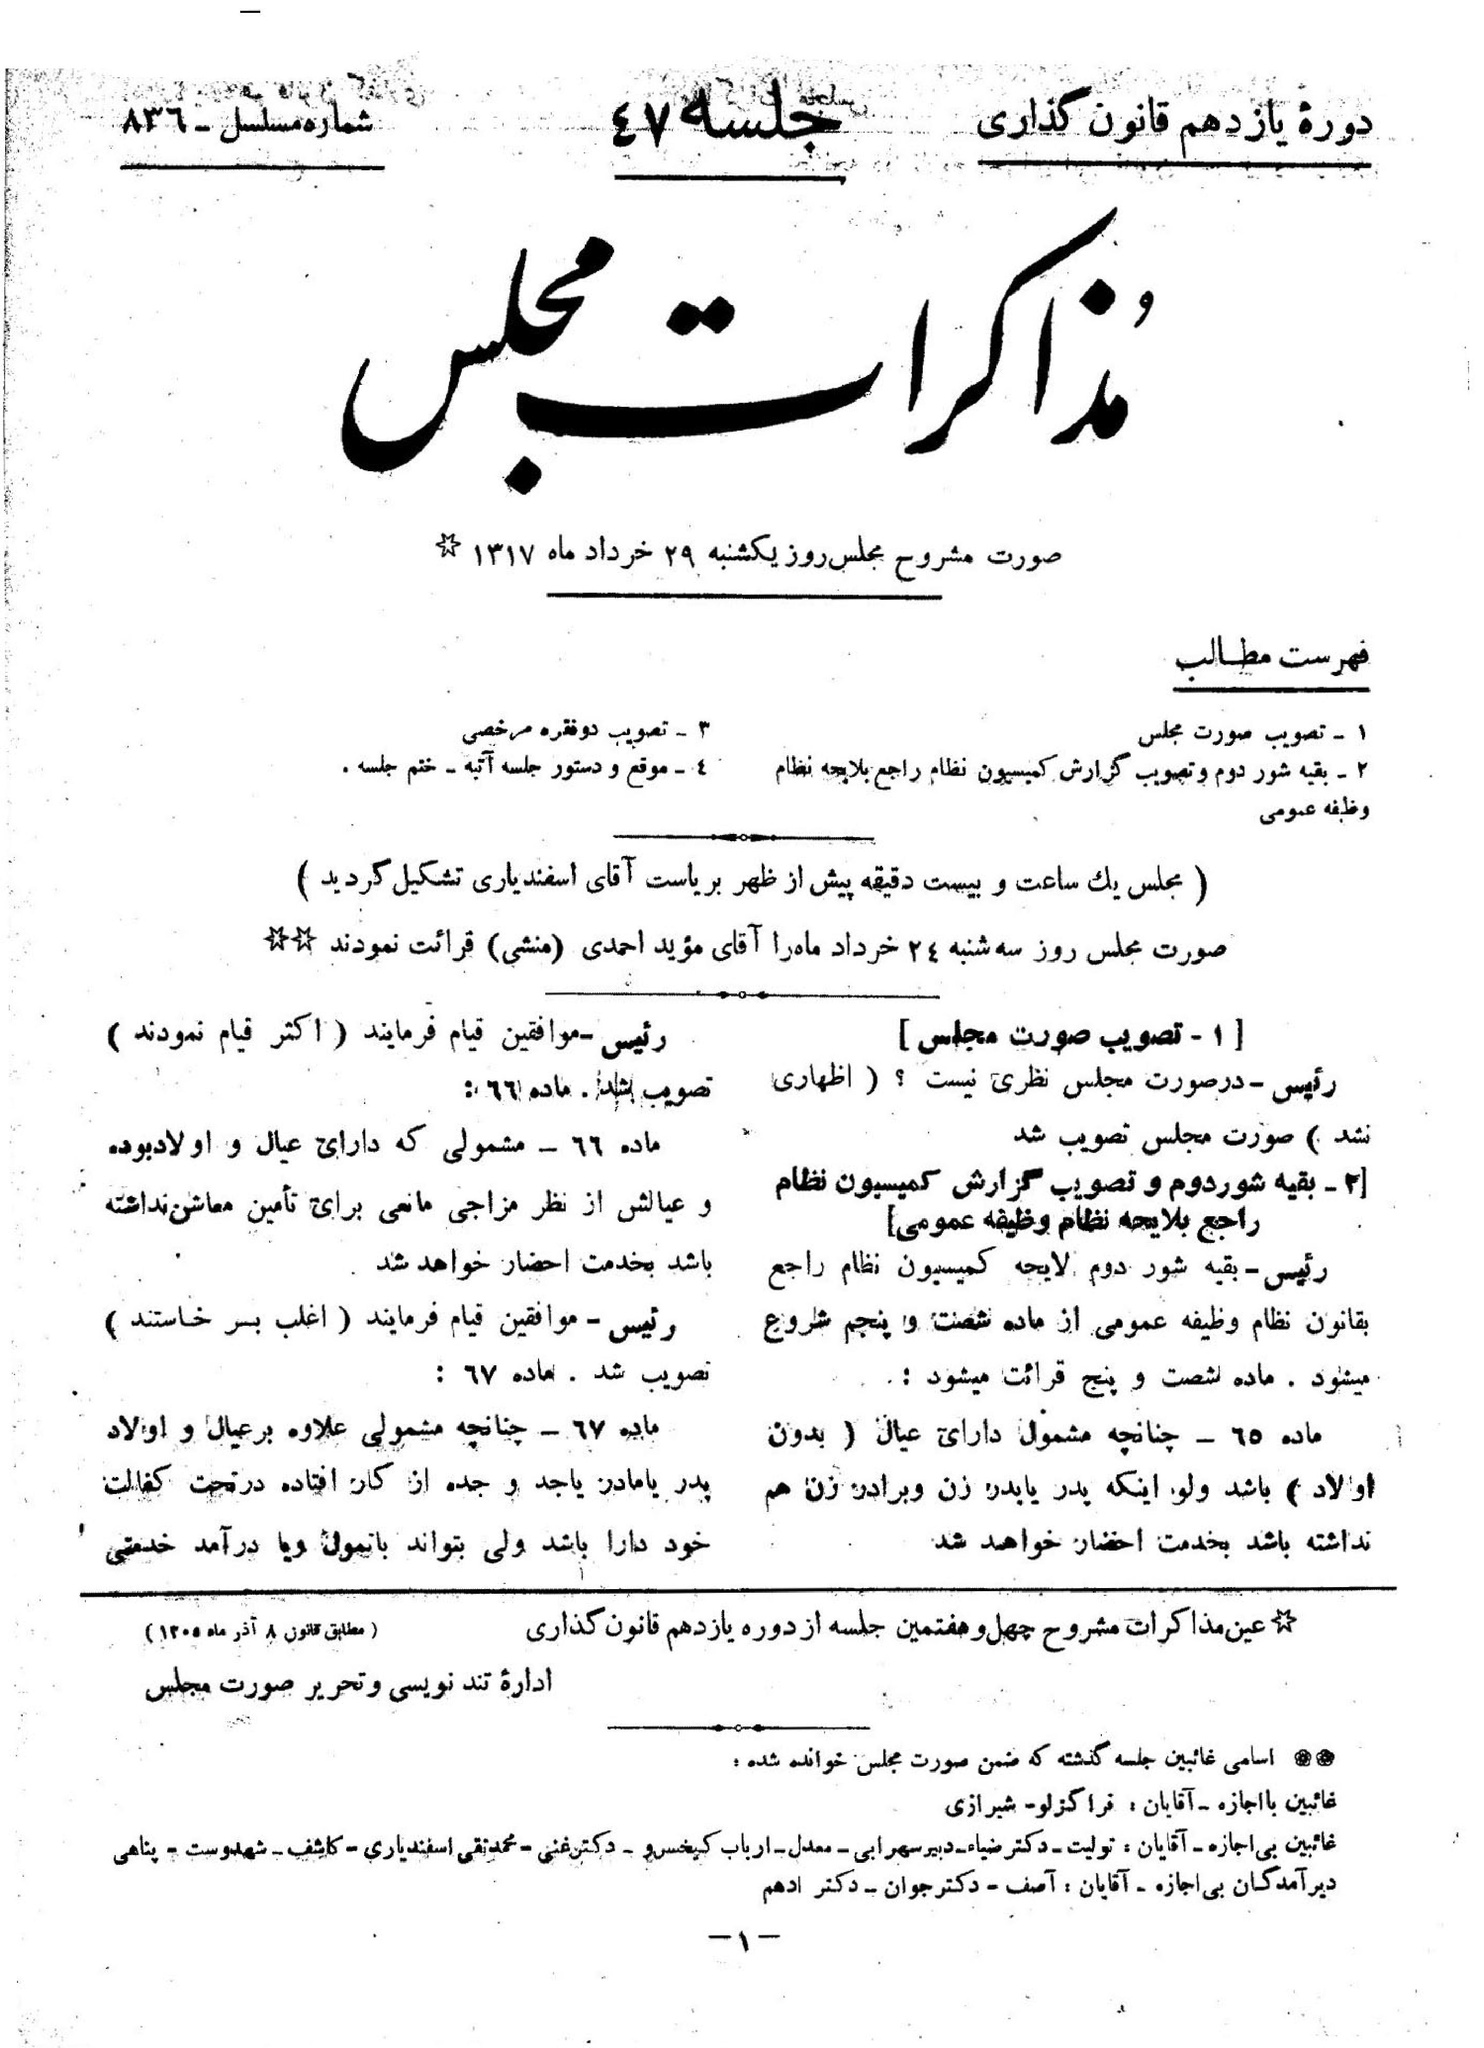 دورهٔ یازدهم قانون گذاری
جلسه ٤٧
شماره مسلسل ـ ٨٣٦
مُذاکرات مجلس
صورت مشروح مجلس روز یکشنبه ٢٩ خرداد ماه ١٣١٧ ☆
فهرست مطالب
١ ـ تصویب صورت مجلس
٢ ـ بقیه شور دوم و تصویب گزارش کمیسیون نظام راجع بلایحه نظام
وظیفه عمومی
٣ ـ تصویب دو فقره مرخصی
٤ ـ موقع و دستور جلسه آتیه ـ ختم جلسه .
( مجلس یك ساعت و بیست دقیقه پیش از ظهر بریاست آقای اسفندیاری تشکیل گردید )
صورت مجلس روز سه شنبه ٢٤ خرداد ماه را آقای مؤید احمدی (منشی) قرائت نمودند ☆☆
[ ١ - تصویب صورت مجلس ]
رئیس ـ درصورت مجلس نظری نیست ؟ ( اظهاری
نشد ) صورت مجلس تصویب شد
[٢ ـ بقیه شور دوم و تصویب گزارش کمیسیون نظام
راجع بلایحه نظام وظیفه عمومی]
رئیس ـ بقیه شور دوم لایحه کمیسیون نظام راجع
بقانون نظام وظیفه عمومی از ماده شصت و پنجم شروع
میشود . ماده شصت و پنج قرائت میشود :
ماده ٦٥ ـ چنانچه مشمول دارای عیال ( بدون
اولاد ) باشد ولو اینکه پدر یا پدر زن و برادر زن هم
نداشته باشد بخدمت احضار خواهد شد
رئیس ـ موافقین قیام فرمایند ( اکثر قیام نمودند )
تصویب شد . ماده ٦٦ :
ماده ٦٦ ـ مشمولی که دارای عیال و اولاد بوده
و عیالش از نظر مزاجی مانعی برای تأمین معاش نداشته
باشد بخدمت احضار خواهد شد
رئیس ـ موافقین قیام فرمایند ( اغلب بر خاستند )
تصویب شد . ماده ٦٧ :
ماده ٦٧ ـ چنانچه مشمولی علاوه بر عیال و اولاد
پدر یا مادر یا جد و جده از کار افتاده در تحت کفالت
خود دارا باشد ولی بتواند با تمول و یا درآمد خدمتی
☆ عین مذاکرات مشروح چهل و هفتمین جلسه از دوره یازدهم قانون گذاری
( مطابق قانون ٨ آذر ماه ١٣٠٥ )
ادارهٔ تند نویسی و تحریر صورت مجلس
❁❁ اسامی غائبین جلسه گذشته که ضمن صورت مجلس خوانده شده :
غائبین با اجازه ـ آقایان : قراگزلو ـ شیرازی
غائبین بی اجازه ـ آقایان : تولیت ـ دکتر ضیاء ـ دبیر سهرابی ـ معدل ـ ارباب کیخسرو ـ دکتر غنی ـ محمد تقی اسفندیاری ـ کاشف ـ شهدوست ـ پناهی
دیر آمدگان بی اجازه ـ آقایان : آصف ـ دکتر جوان ـ دکتر ادهم
ـ ١ ـ